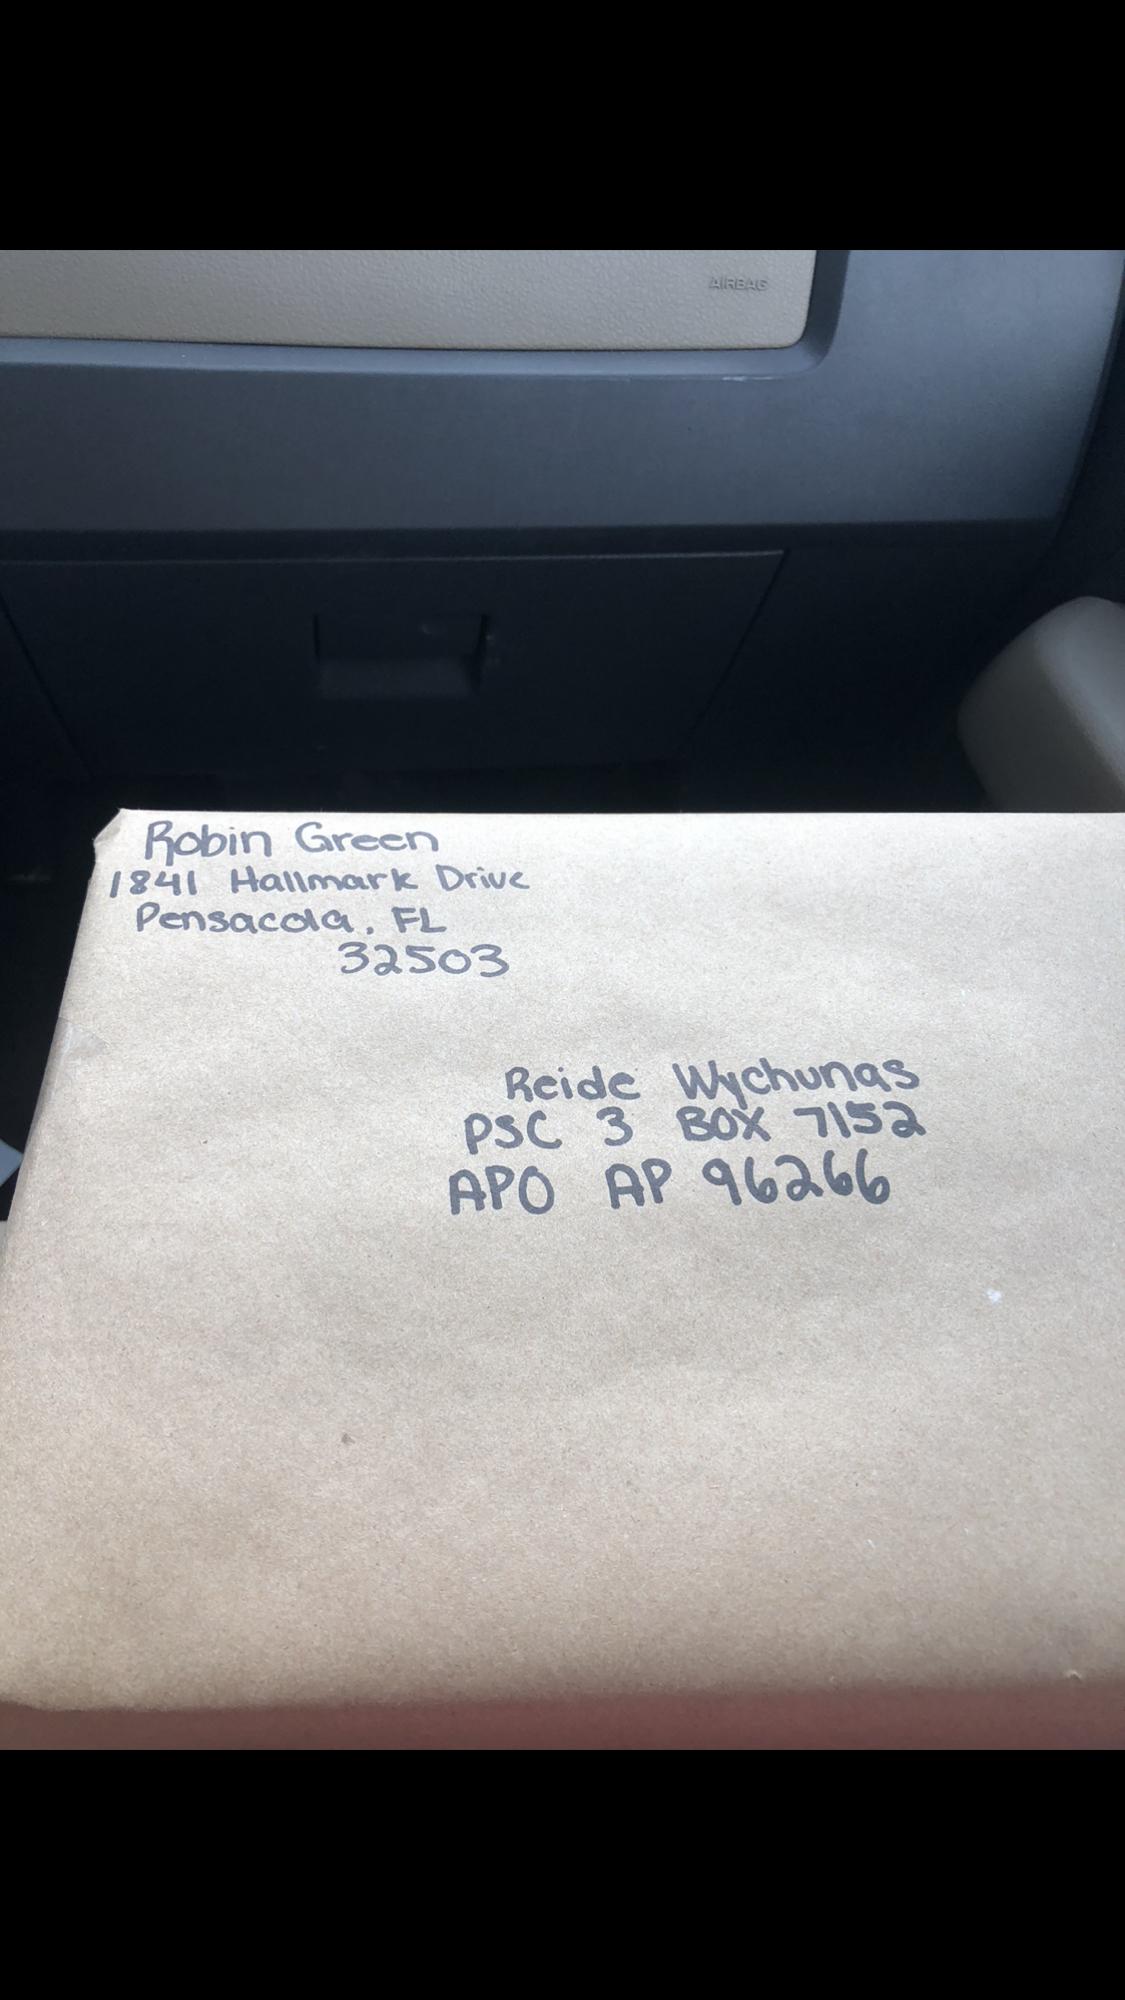 AIRBAG
Robin Green
1841 Hallmark Drive
Pensacola, FL
32503
Reide Wychunas
PSC 3 BOX 7152
APO AP 96266